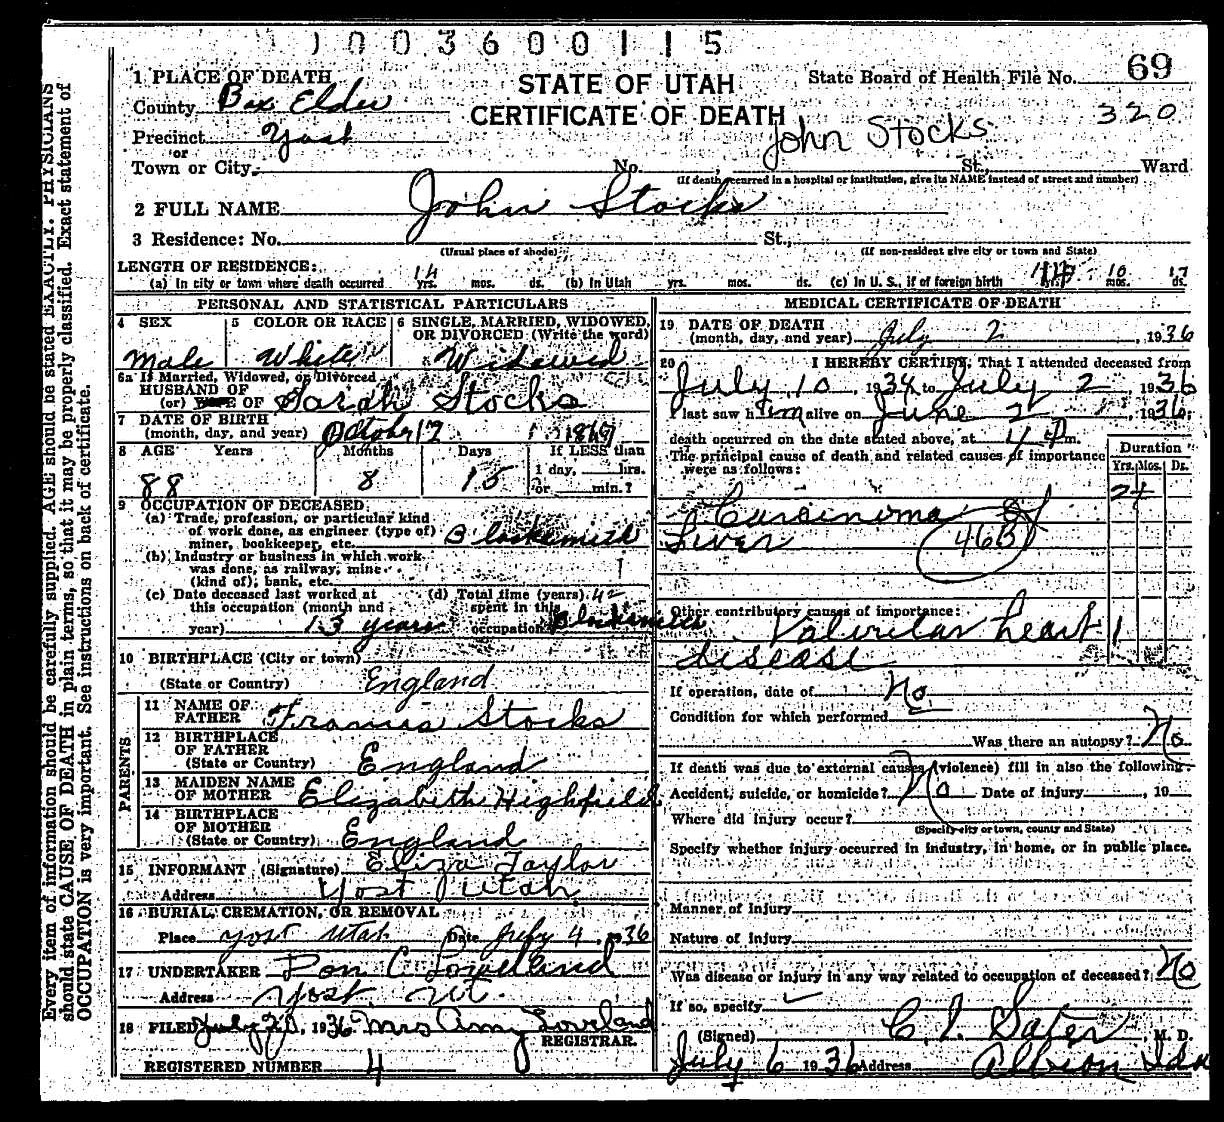 1003600115
1 PLACE OF DEATH
STATE OF UTAH
State Board of Health File No. 69
County Box Elder
CERTIFICATE OF DEATH
320
Precinct Yost
John Stocks
or
Town or City No. St., Ward
(If death occurred in a hospital or institution, give its NAME instead of street and number)
2 FULL NAME John Stocks
3 Residence: No. St.,
(Usual place of abode) (If non-resident give city or town and State)
LENGTH OF RESIDENCE:
(a) In city or town where death occurred 14 yrs. mos. ds. (b) In Utah yrs. mos. ds. (c) In U. S., if of foreign birth yrs. 10 mos. 17 ds.
PERSONAL AND STATISTICAL PARTICULARS
4 SEX Male
5 COLOR OR RACE White
6 SINGLE, MARRIED, WIDOWED, OR DIVORCED (Write the word) Widowed
6a If Married, Widowed, or Divorced
HUSBAND OF
(or) WIFE OF Sarah Stocks
7 DATE OF BIRTH
(month, day, and year) October 17
8 AGE Years Months Days If LESS than
1 day, hrs.
88 8 15 or min.?
9 OCCUPATION OF DECEASED
(a) Trade, profession, or particular kind
of work done, as engineer (type of)
miner, bookkeeper, etc. Blacksmith
(b) Industry or business in which work
was done, as railway, mine
(kind of), bank, etc.
(c) Date deceased last worked at
this occupation (month and
year) 13 years
(d) Total time (years) 42
spent in this
occupation Blacksmith
10 BIRTHPLACE (City or town)
(State or Country) England
PARENTS
11 NAME OF
FATHER Francis Stocks
12 BIRTHPLACE
OF FATHER
(State or Country) England
13 MAIDEN NAME
OF MOTHER Elizabeth Highfield
14 BIRTHPLACE
OF MOTHER
(State or Country) England
15 INFORMANT (Signature) Eliza Taylor
Address Yost Utah
16 BURIAL, CREMATION, OR REMOVAL
Place Yost Utah Date July 4, 1936
17 UNDERTAKER Don C Loveland
Address Yost, Ut.
18 FILED July 1936 Mrs Amy Loveland
REGISTRAR.
REGISTERED NUMBER 4
MEDICAL CERTIFICATE OF DEATH
19 DATE OF DEATH
(month, day, and year) July 2, 1936
20 I HEREBY CERTIFY, That I attended deceased from
July 10, 1934 to July 2, 1936
I last saw him alive on June 2, 1936
death occurred on the date stated above, at 4 P m.
The principal cause of death and related causes of importance
were as follows:
Duration
Yrs. Mos. Ds.
2+
Carcinoma of
Liver
Other contributory causes of importance:
Valvular heart 1
disease
If operation, date of No
Condition for which performed
Was there an autopsy? No
If death was due to external causes (violence) fill in also the following:
Accident, suicide, or homicide? No Date of injury , 19
Where did injury occur?
(Specify city or town, county and State)
Specify whether injury occurred in industry, in home, or in public place.
Manner of injury
Nature of injury
Was disease or injury in any way related to occupation of deceased? No
If so, specify
(Signed) C. I. Sater, M. D.
July 6 1936 Address Albion Ida
Every item of information should be carefully supplied. AGE should be stated EXACTLY. PHYSICIANS
should state CAUSE OF DEATH in plain terms, so that it may be properly classified. Exact statement of
OCCUPATION is very important. See instructions on back of certificate.